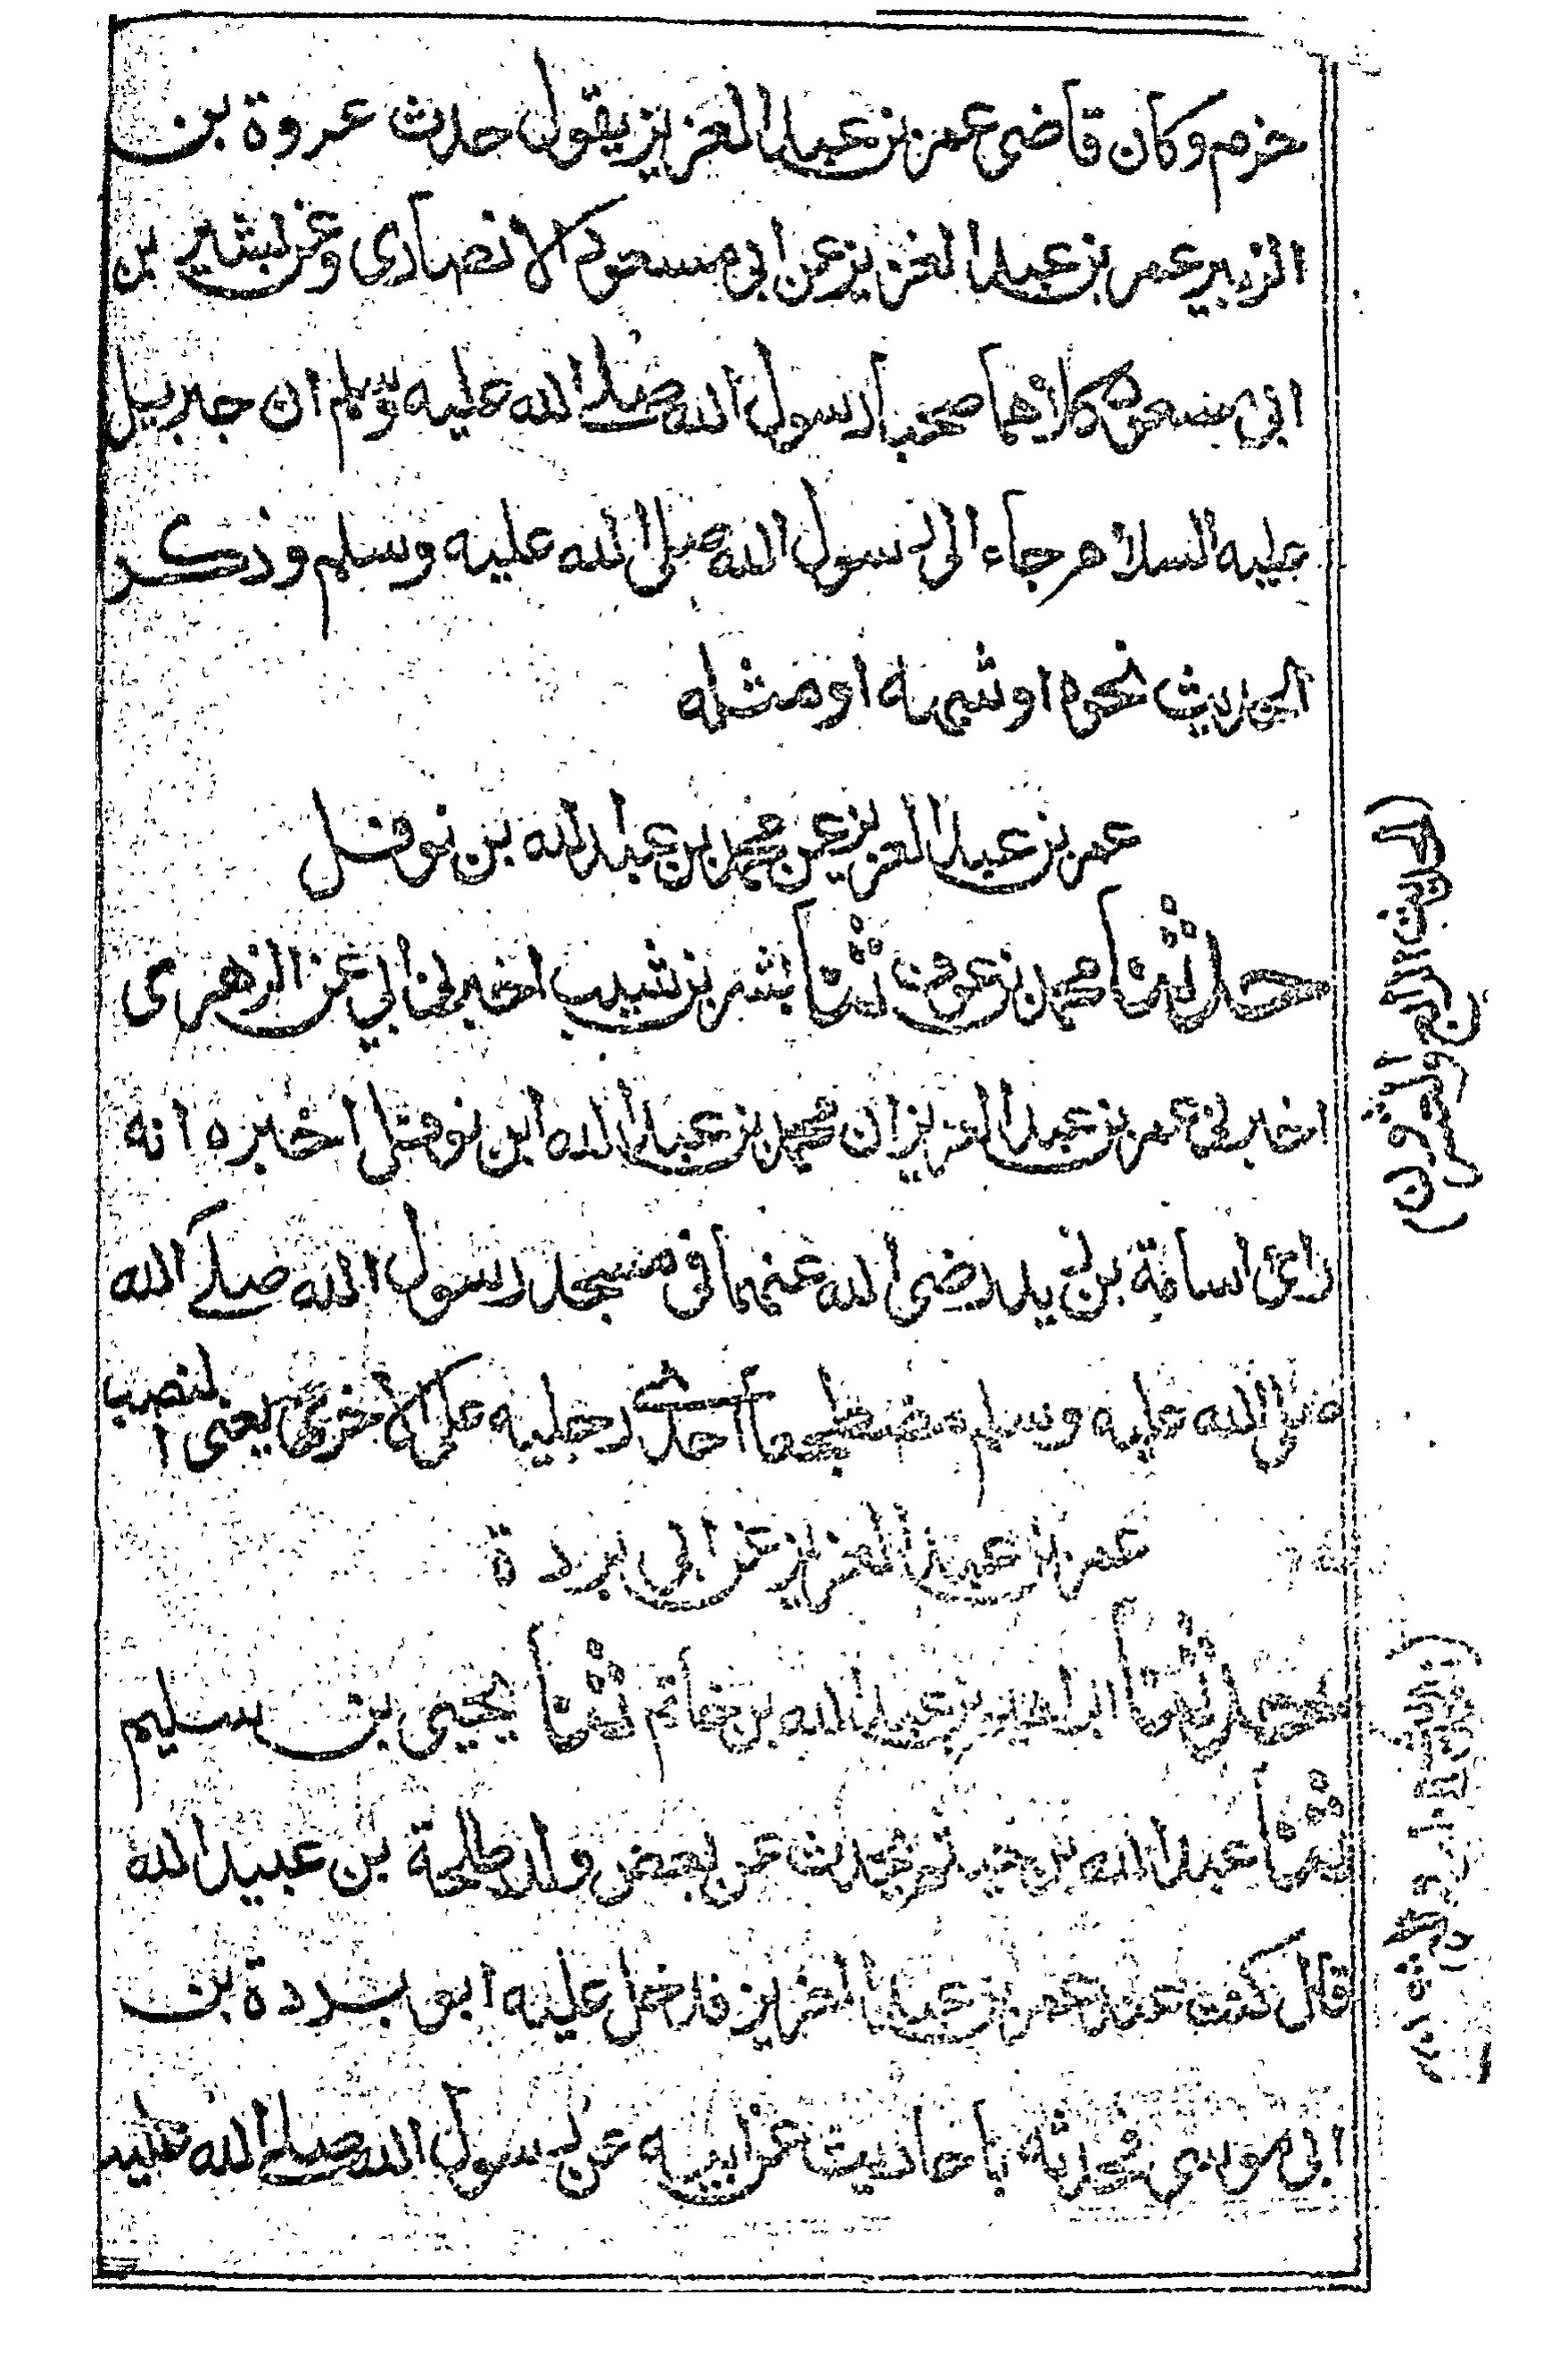 حزم وكان قاضى عمر بن عبد العزيز يقول حدث عروة بن
الزبير عمر بن عبد العزيز عن ابى مسعود الانصارى وعن بشير بن
ابى مسعود كلاهما صحب رسول الله صلى الله عليه وسلم ان جبريل
عليه السلام جاء الى رسول الله صلى الله عليه وسلم وذكر
الحديث نحوه او شبهه او مثله
عمر بن عبد العزيز عن محمد بن عبد الله بن نوفل
حدثنا محمد بن عوف ثنا بشر بن شعيب اخبرنى ابى عن الزهرى
اخبرنى عمر بن عبد العزيز ان محمد بن عبد الله ابن نوفل اخبره انه
راى اسامة بن زيد رضى الله عنهما فى مسجد رسول الله صلى الله
صلى الله عليه وسلم مضطجعا احدى رجليه على الاخرى يعنى
عمر بن عبد العزيز عن ابى بردة
حدثنا ابراهيم بن عبد الله بن حاتم ثنا يحيى بن سليم
ثنا عبد الله بن يحدث عن بعض ولد طلحة بن عبيد الله
قال كنت عند عمر بن عبد العزيز فدخل عليه ابو بردة بن
ابى موسى فحدثه باحاديث عن ابيه عن رسول الله صلى الله عليه
(الحديث الرابع والعشرون)